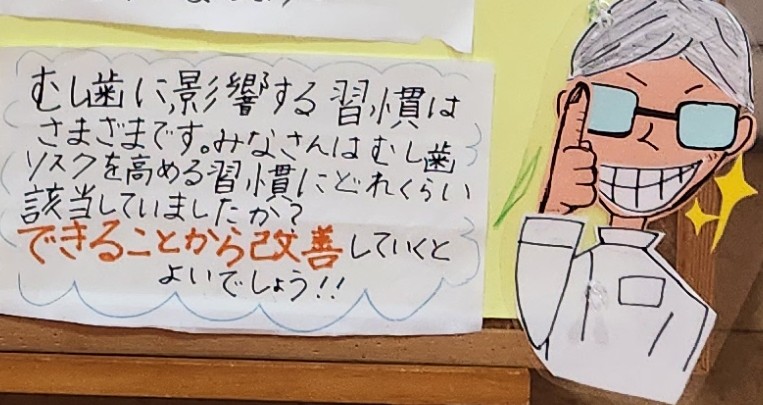 むし歯に影響する習慣は
さまざまです。みなさんはむし歯
リスクを高める習慣にどれくらい
該当していましたか？
できることから改善していくと
よいでしょう!!